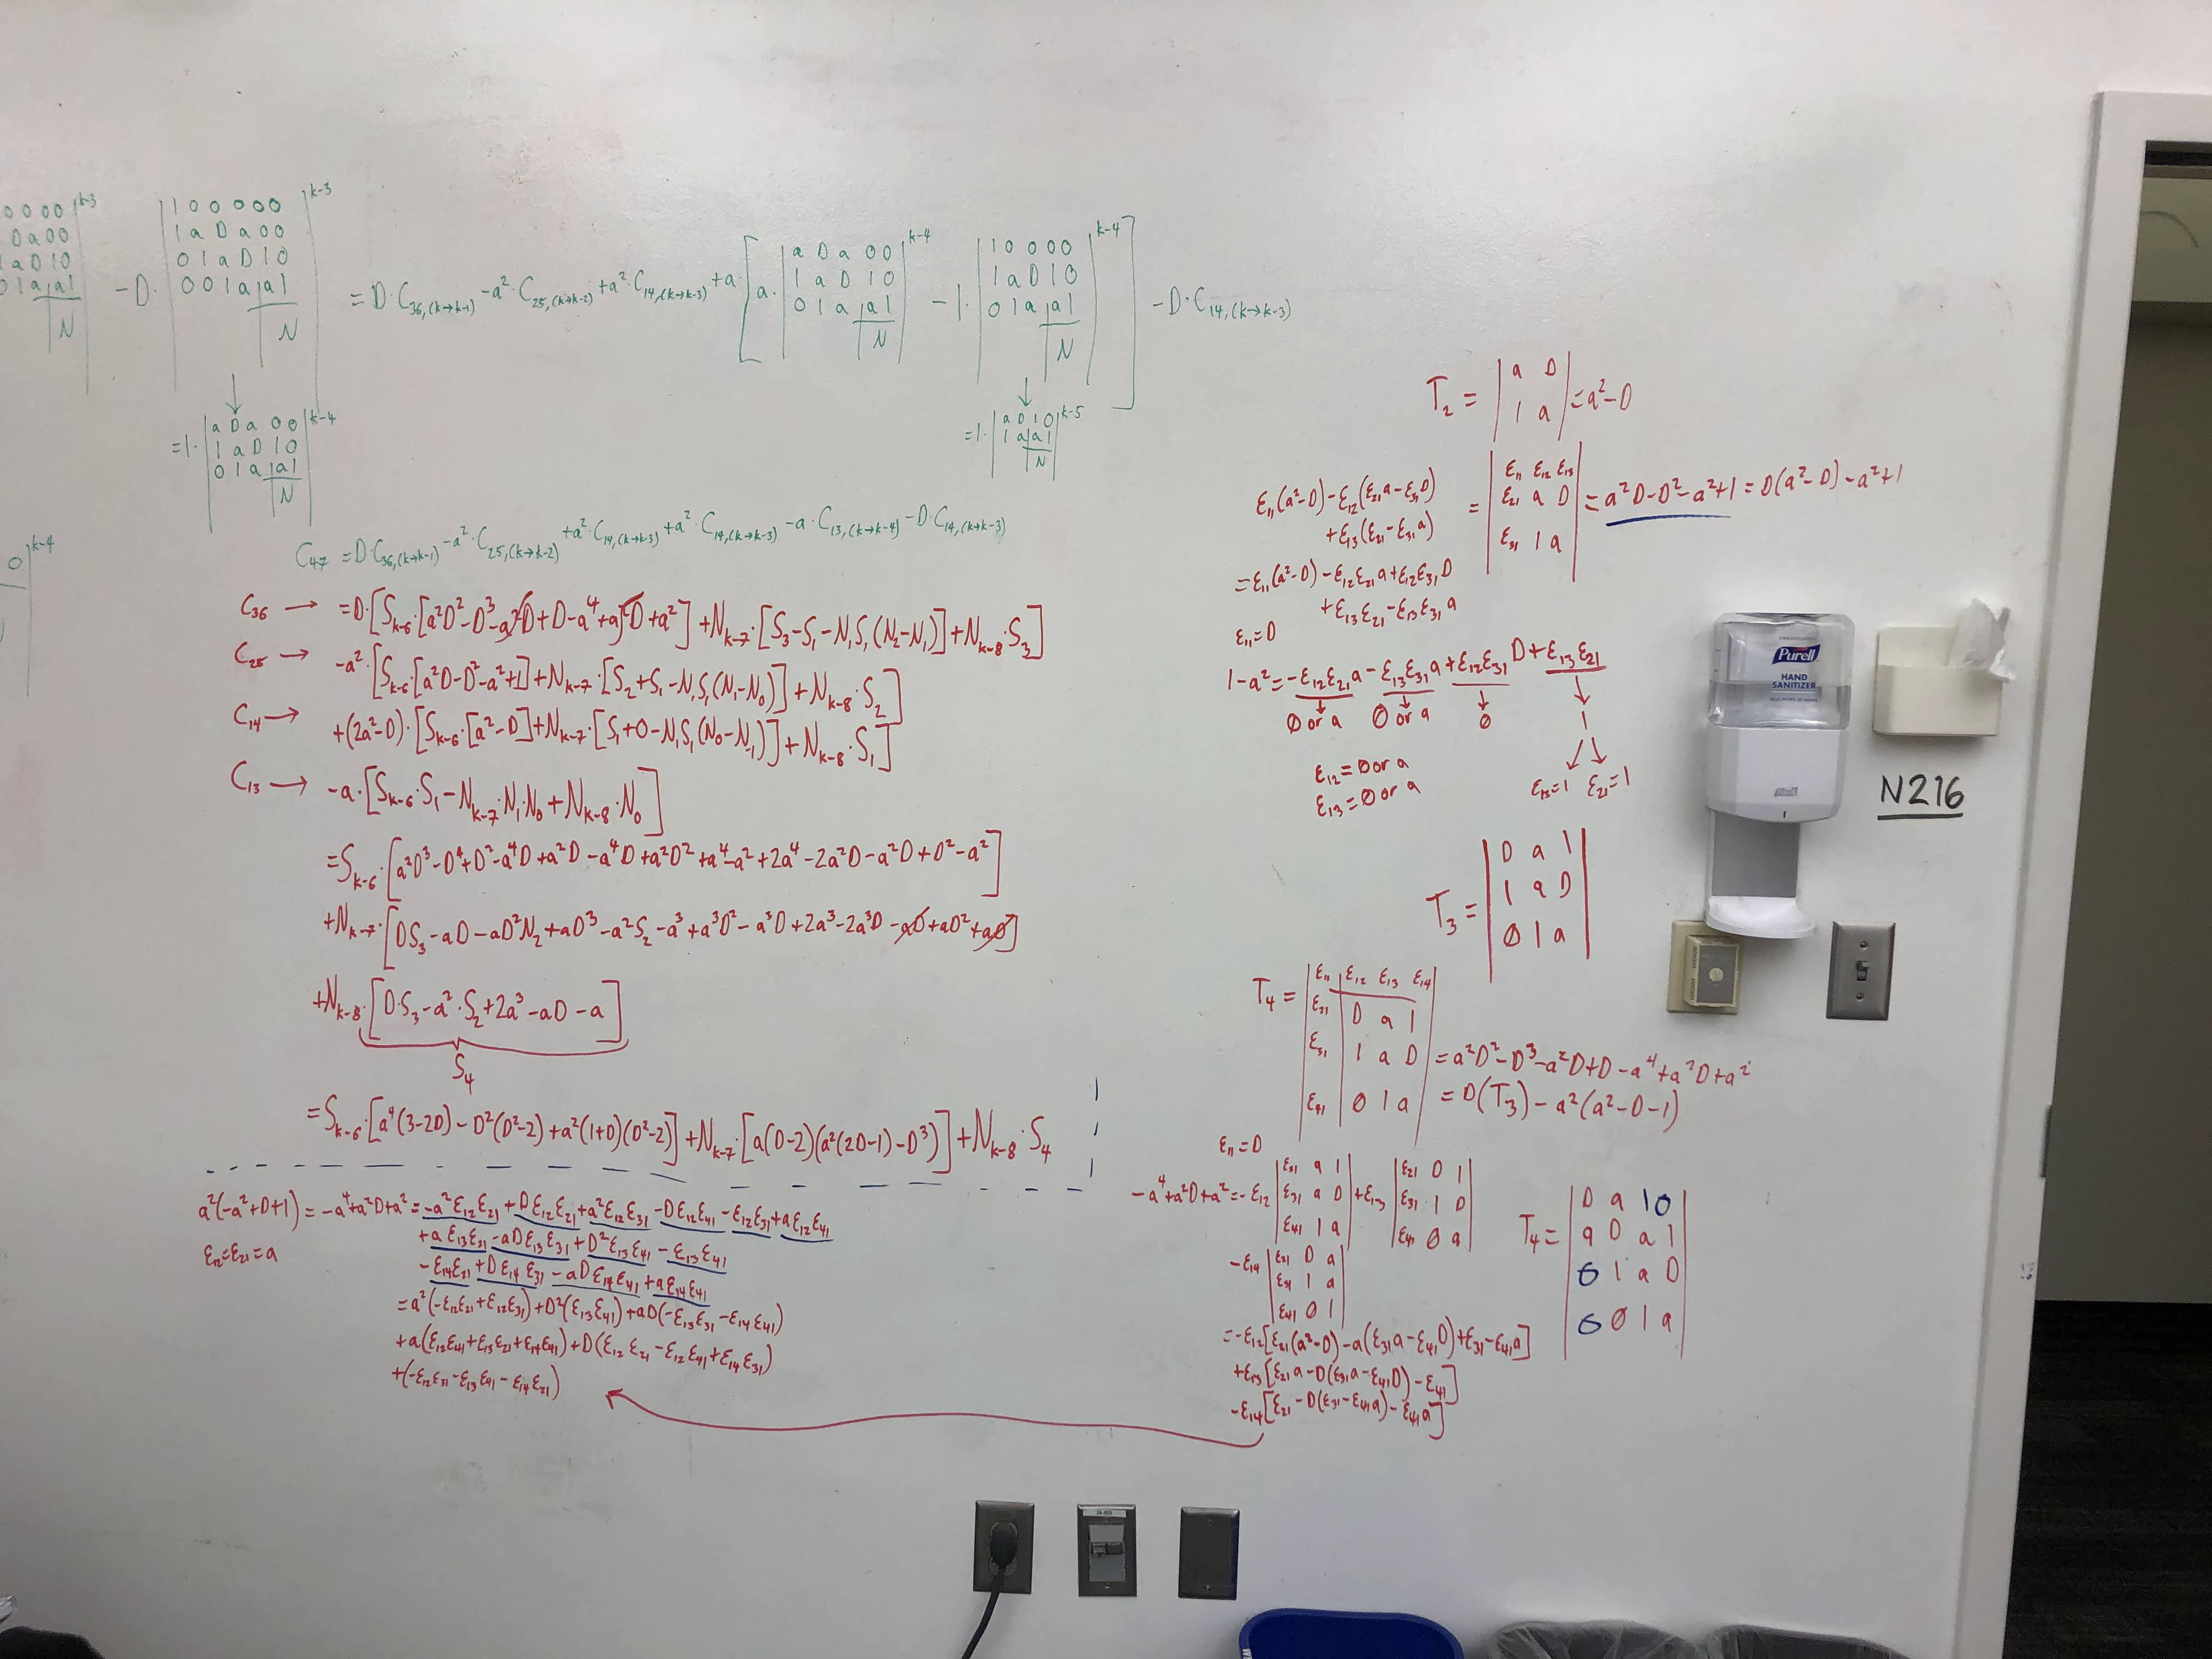 0 0 0 0 |^{k-3}
D a 0 0
1 a D 1 0
0 1 a a 1
N
- D · | 1 0 0 0 0 0 |^{k-3}
1 a D a 0 0
0 1 a D 1 0
0 0 1 a a 1
N
= D·C_{36,(k→k-1)} - a²·C_{25,(k→k-2)} + a²·C_{14,(k→k-3)} + a·[ a·| a D a 0 0 |^{k-4}
1 a D 1 0
0 1 a a 1
N
- 1·| 1 0 0 0 0 |^{k-4} ]
1 a D 1 0
0 1 a a 1
N
- D·C_{14,(k→k-3)}
↓
= 1·| a D a 0 0 |^{k-4}
1 a D 1 0
0 1 a a 1
N
↓
= 1·| a D 1 0 |^{k-5}
1 a a 1
N
0 |^{k-4}
C_{47} = D·C_{36,(k→k-1)} - a²·C_{25,(k→k-2)} + a²·C_{14,(k→k-3)} + a²·C_{14,(k→k-3)} - a·C_{13,(k→k-4)} - D·C_{14,(k→k-3)}
C_{36} → = D·[S_{k-6}[a²D²-D³-a²D+D-a⁴+a²D+a²] + N_{k-7}·[S₃-S₁-N₁S₁(N₂-N₁)] + N_{k-8}·S₃]
C_{25} → -a²·[S_{k-6}·[a²D-D²-a²+1] + N_{k-7}·[S₂+S₁-N₁S₁(N₁-N₀)] + N_{k-8}·S₂]
C_{14} → +(2a²-D)·[S_{k-6}·[a²-D] + N_{k-7}·[S₁+0-N₁S₁(N₀-N₋₁)] + N_{k-8}·S₁]
C_{13} → -a·[S_{k-6}·S₁ - N_{k-7}·N₁·N₀ + N_{k-8}·N₀]
= S_{k-6}·[a²D³-D⁴+D²-a⁴D+a²D-a⁴D+a²D²+a⁴-a²+2a⁴-2a²D-a²D+D²-a²]
+N_{k-7}·[DS₃-aD-aD²N₂+aD³-a²S₂-a³+a³D²-a³D+2a³-2a³D-aD+aD²+aD]
+N_{k-8}·[D·S₃-a²·S₂+2a³-aD-a]
S₄
= S_{k-6}·[a⁴(3-2D)-D²(D²-2)+a²(1+D)(D²-2)] + N_{k-7}·[a(D-2)(a²(2D-1)-D³)] + N_{k-8}·S₄
a²(-a²+D+1) = -a⁴+a²D+a² = -a²ε₁₂ε₂₁+Dε₁₂ε₂₁+a²ε₁₂ε₃₁-Dε₁₂ε₄₁-ε₁₂ε₃₁+aε₁₂ε₄₁
ε₁₂=ε₂₁=a
+aε₁₃ε₂₁-aDε₁₃ε₃₁+D²ε₁₃ε₄₁-ε₁₃ε₄₁
-ε₁₄ε₂₁+Dε₁₄ε₃₁-aDε₁₄ε₄₁+aε₁₄ε₄₁
= a²(-ε₁₂ε₂₁+ε₁₂ε₃₁)+D²(ε₁₃ε₄₁)+aD(-ε₁₃ε₃₁-ε₁₄ε₄₁)
+a(ε₁₂ε₄₁+ε₁₃ε₂₁+ε₁₄ε₄₁)+D(ε₁₂ε₂₁-ε₁₂ε₄₁+ε₁₄ε₃₁)
+(-ε₁₂ε₃₁-ε₁₃ε₄₁-ε₁₄ε₂₁)
T₂ = | a D | = a²-D
1 a
ε₁₁(a²-D)-ε₁₂(ε₂₁a-ε₃₁D)
+ε₁₃(ε₂₁-ε₃₁a)
= | ε₁₁ ε₁₂ ε₁₃ |
ε₂₁ a D
ε₃₁ 1 a
= a²D-D²-a²+1 = D(a²-D)-a²+1
= ε₁₁(a²-D)-ε₁₂ε₂₁a+ε₁₂ε₃₁D
+ε₁₃ε₂₁-ε₁₃ε₃₁a
ε₁₁=D
1-a² = -ε₁₂ε₂₁a-ε₁₃ε₃₁a+ε₁₂ε₃₁D+ε₁₃ε₂₁
↓ ↓ ↓ ↓
∅ or a ∅ or a ∅ 1
↙ ↘
ε₁₂=∅ or a
ε₁₃=∅ or a
ε₁₃=1 ε₂₁=1
T₃ = | D a 1 |
1 a D
∅ 1 a
T₄ = | ε₁₁ ε₁₂ ε₁₃ ε₁₄ |
ε₂₁ D a 1
ε₃₁ 1 a D
ε₄₁ 0 1 a
= a²D²-D³-a²D+D-a⁴+a²D+a²
= D(T₃)-a²(a²-D-1)
ε₁₁=D
-a⁴+a²D+a² = -ε₁₂ | ε₂₁ a 1 | + ε₁₃ | ε₂₁ D 1 |
ε₃₁ a D ε₃₁ 1 D
ε₄₁ 1 a ε₄₁ ∅ a
-ε₁₄ | ε₂₁ D a |
ε₃₁ 1 a
ε₄₁ 0 1
= -ε₁₂[ε₂₁(a²-D)-a(ε₃₁a-ε₄₁D)+ε₃₁-ε₄₁a]
+ε₁₃[ε₂₁a-D(ε₃₁a-ε₄₁D)-ε₄₁]
-ε₁₄[ε₂₁-D(ε₃₁-ε₄₁a)-ε₄₁a]
T₄ = | D a 1 0 |
a D a 1
0 1 a D
0 ∅ 1 a
Purell
HAND
SANITIZER
N216